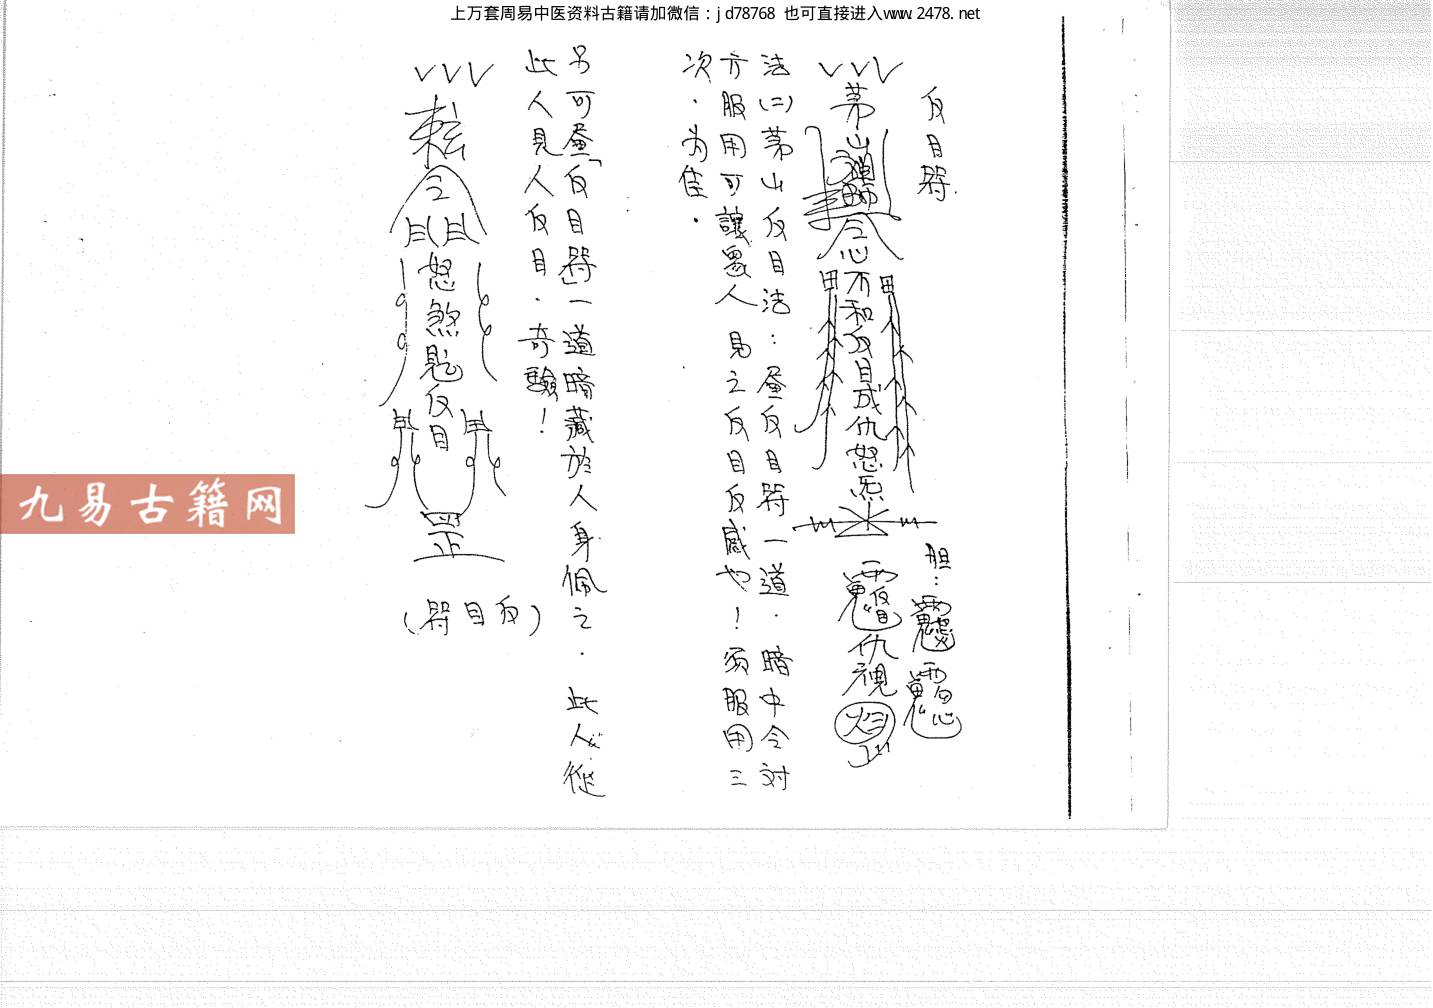 上万套周易中医资料古籍请加微信：jd78768 也可直接进入www.2478.net
反目符.
茅山
念心不和反目成仇怒炁
胆：
仇視
法(二)茅山反目法：畫反目符一道．暗中令対
方服用可讓眾人見之反目反感也！須服用三
次．為佳．
另可畫「反目符」一道暗藏於人身佩之．此人必從
此人見人反目．奇驗！
令
怒煞
反目
罡
(反目符)
九易古籍网